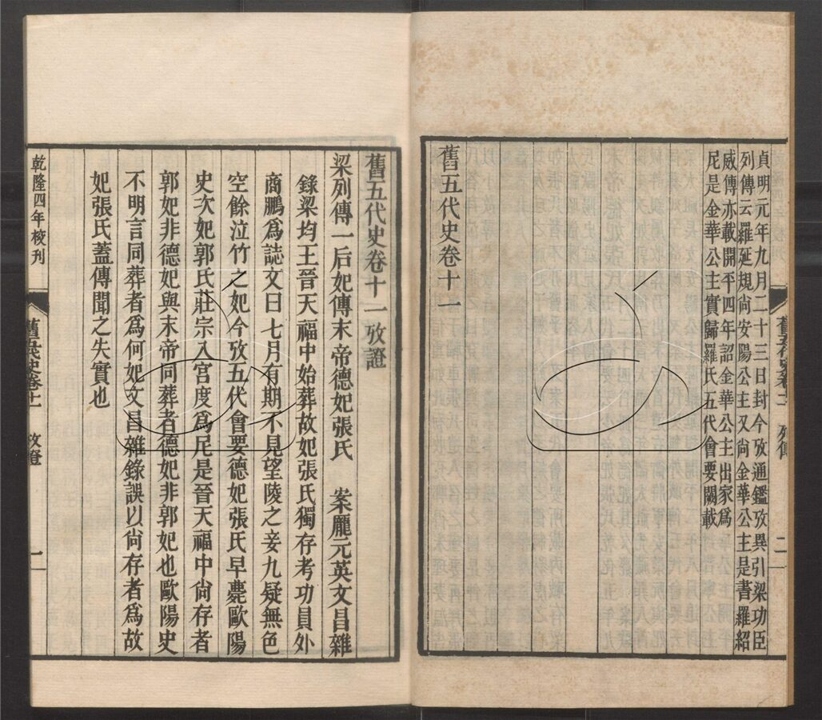 貞明元年九月二十三日封今攷通鑑攷異引梁功臣
列傳云羅延規尙安陽公主又尙金華公主是書羅紹
威傳亦載開平四年詔金華公主出家爲
尼是金華公主實歸羅氏五代會要闕載
舊五代史卷十一
舊五代史卷十一 列傳 二
舊五代史卷十一攷證
梁列傳一后妃傳末帝德妃張氏 案龎元英文昌雜
錄梁均王晉天福中始葬故妃張氏獨存考功員外
商鵬爲誌文曰七月有期不見望陵之妾九疑無色
空餘泣竹之妃今攷五代會要德妃張氏早薨歐陽
史次妃郭氏莊宗入宮度爲尼是晉天福中尙存者
郭妃非德妃與末帝同葬者德妃非郭妃也歐陽史
不明言同葬者爲何妃文昌雜錄誤以尙存者爲故
妃張氏蓋傳聞之失實也
乾隆四年校刊
舊五代史卷十一 攷證 一